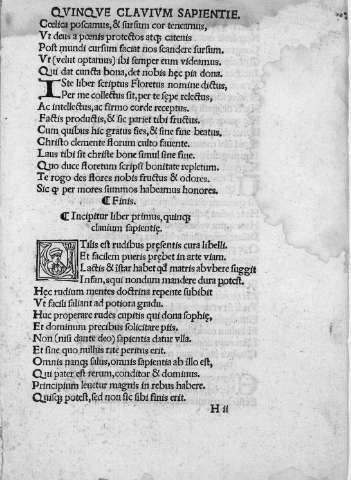 QVINQVE CLAVIVM SAPIENTIE.
Cœlica poscamus, & sursum cor teneamus,
Vt deus a pœnis protectos atq; catenis
Post mundi cursum faciat nos scandere sursum.
Vt (velut optamus) ibi semper eum videamus.
Qui dat cuncta bona, det nobis hęc pia dona.
ISte liber scriptus Floretus nomine dictus,
Per me collectus sit, per te sępe relectus,
Ac intellectus, ac firmo corde receptus.
Factis productis, & sic pariet tibi fructus.
Cum quibus hic gratus fies, & sine fine beatus,
Christo clemente florum culto fauente.
Laus tibi sit christe bone simul sine fine.
Quo duce floretum scripsi bonitate repletum.
Te rogo des flores nobis fructus & odores.
Sic q; per mores summos habeamus honores.
¶ Finis.
¶ Incipitur liber primus, quinq;
clauium sapientię.
VTilis est rudibus pręsentis cura libelli.
Et facilem pueris prębet in arte viam.
Lactis & īstar habet qđ matris ab vbere suggit
Infans, qui nondum mandere dura potest.
Hęc rudium mentes doctrina repente subibit
Vt facili saliant ad potiora gradu.
Huc properare rudes cupitis qui dona sophię,
Et dominum precibus solicitare piis.
Non (nisi dante deo) sapientia datur vlla.
Et sine quo nullus rite peritus erit.
Omnis nanq; salus, omnis sapientia ab illo est,
Qui pater est rerum, conditor & dominus.
Principium leuetur magnis in rebus habere.
Quisq; potest, sed non sic sibi finis erit.
H ii